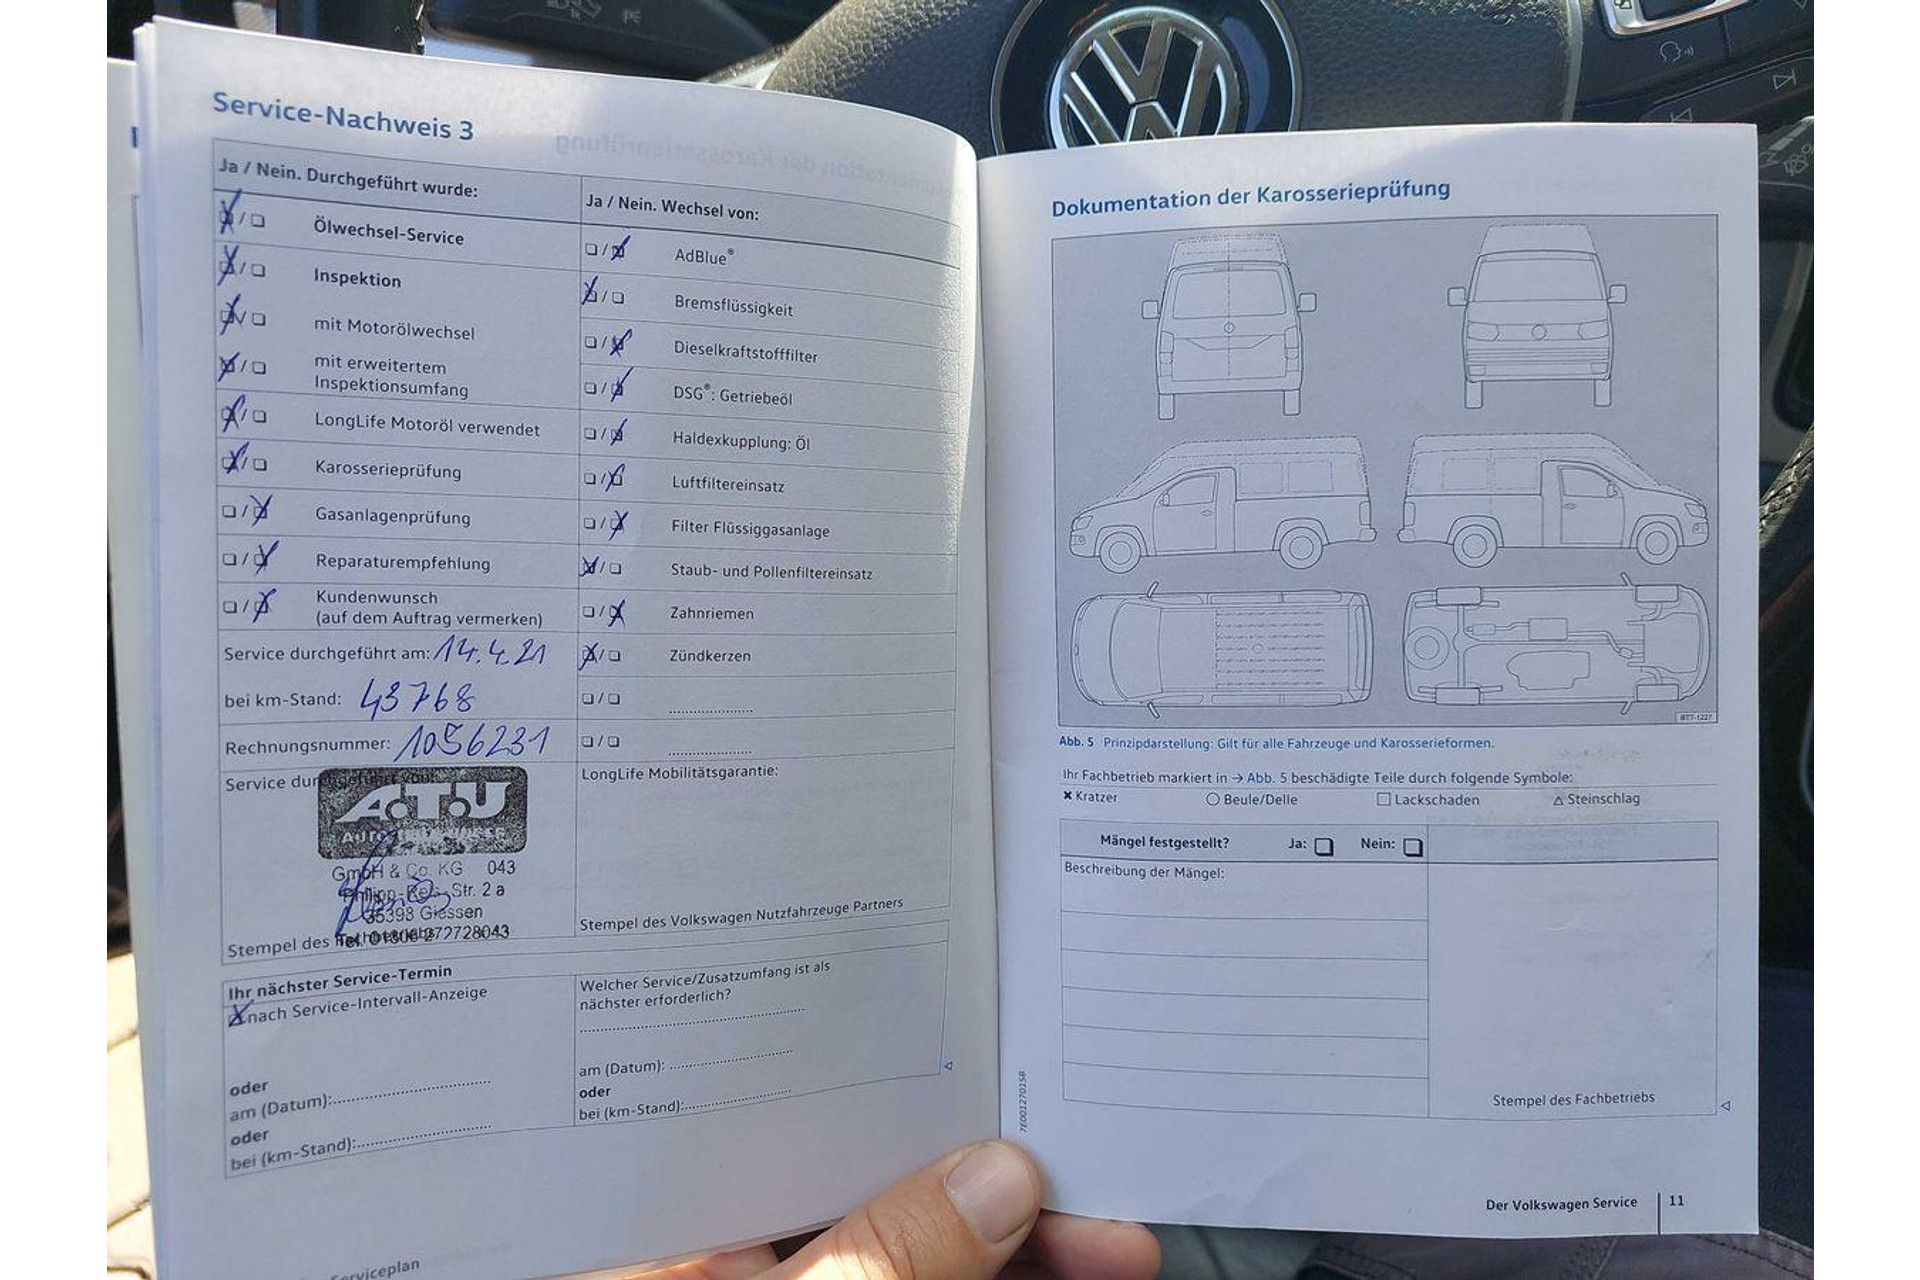 Service-Nachweis 3
Ja / Nein. Durchgeführt wurde:
Ölwechsel-Service
Inspektion
mit Motorölwechsel
mit erweitertem
Inspektionsumfang
LongLife Motoröl verwendet
Karosserieprüfung
Gasanlagenprüfung
Reparaturempfehlung
Kundenwunsch
(auf dem Auftrag vermerken)
Service durchgeführt am: 14.4.21
bei km-Stand: 43768
Rechnungsnummer: 1056231
Ja / Nein. Wechsel von:
AdBlue®
Bremsflüssigkeit
Dieselkraftstofffilter
DSG®: Getriebeöl
Haldexkupplung: Öl
Luftfiltereinsatz
Filter Flüssiggasanlage
Staub- und Pollenfiltereinsatz
Zahnriemen
Zündkerzen
Service durchgeführt von:
A.T.U
GmbH & Co. KG 043
Philipp-Reis-Str. 2 a
35398 Giessen
Tel. 01806-272728043
Stempel des Fachbetriebs
LongLife Mobilitätsgarantie:
Stempel des Volkswagen Nutzfahrzeuge Partners
Ihr nächster Service-Termin
nach Service-Intervall-Anzeige
oder
am (Datum):
oder
bei (km-Stand):
Welcher Service/Zusatzumfang ist als
nächster erforderlich?
am (Datum):
oder
bei (km-Stand):
Serviceplan
Dokumentation der Karosserieprüfung
BTT-1227
Abb. 5 Prinzipdarstellung: Gilt für alle Fahrzeuge und Karosserieformen.
Ihr Fachbetrieb markiert in → Abb. 5 beschädigte Teile durch folgende Symbole:
Kratzer Beule/Delle Lackschaden Steinschlag
Mängel festgestellt? Ja: Nein:
Beschreibung der Mängel:
Stempel des Fachbetriebs
7E0012701SB
Der Volkswagen Service 11